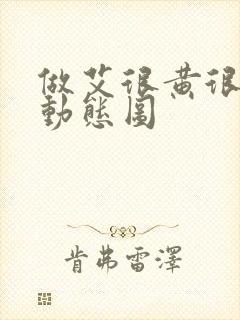 做艾很黄很
動態圖
肯弗雷澤